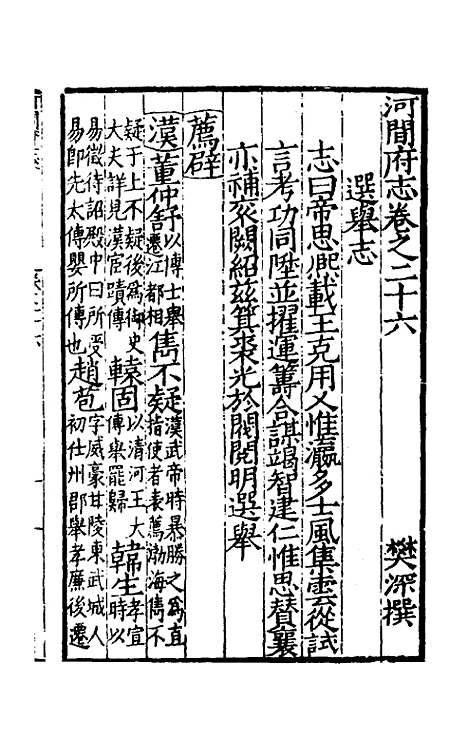 河間府志卷之二十六　樊深撰
選舉志
志曰帝思熈載王克用乂惟瀛多士風集雲從試
言考功同陞並擢運籌合謀竭智建仁惟思贊襄
亦補袞闕紹兹箕裘光於閥閱明選舉
薦辟
漢董仲舒以博士舉遷江都相雋不疑漢武帝時暴勝之為直指使者表薦渤海雋不
疑于上不疑後為御史大夫詳見漢宦蹟傳轅固以清河王大傅舉罷歸韓生孝宣時以
易徵待詔殿中曰所受易即先太傅嬰所傳也趙苞字威豪甘陵東武城人初仕州郡舉孝廉後遷